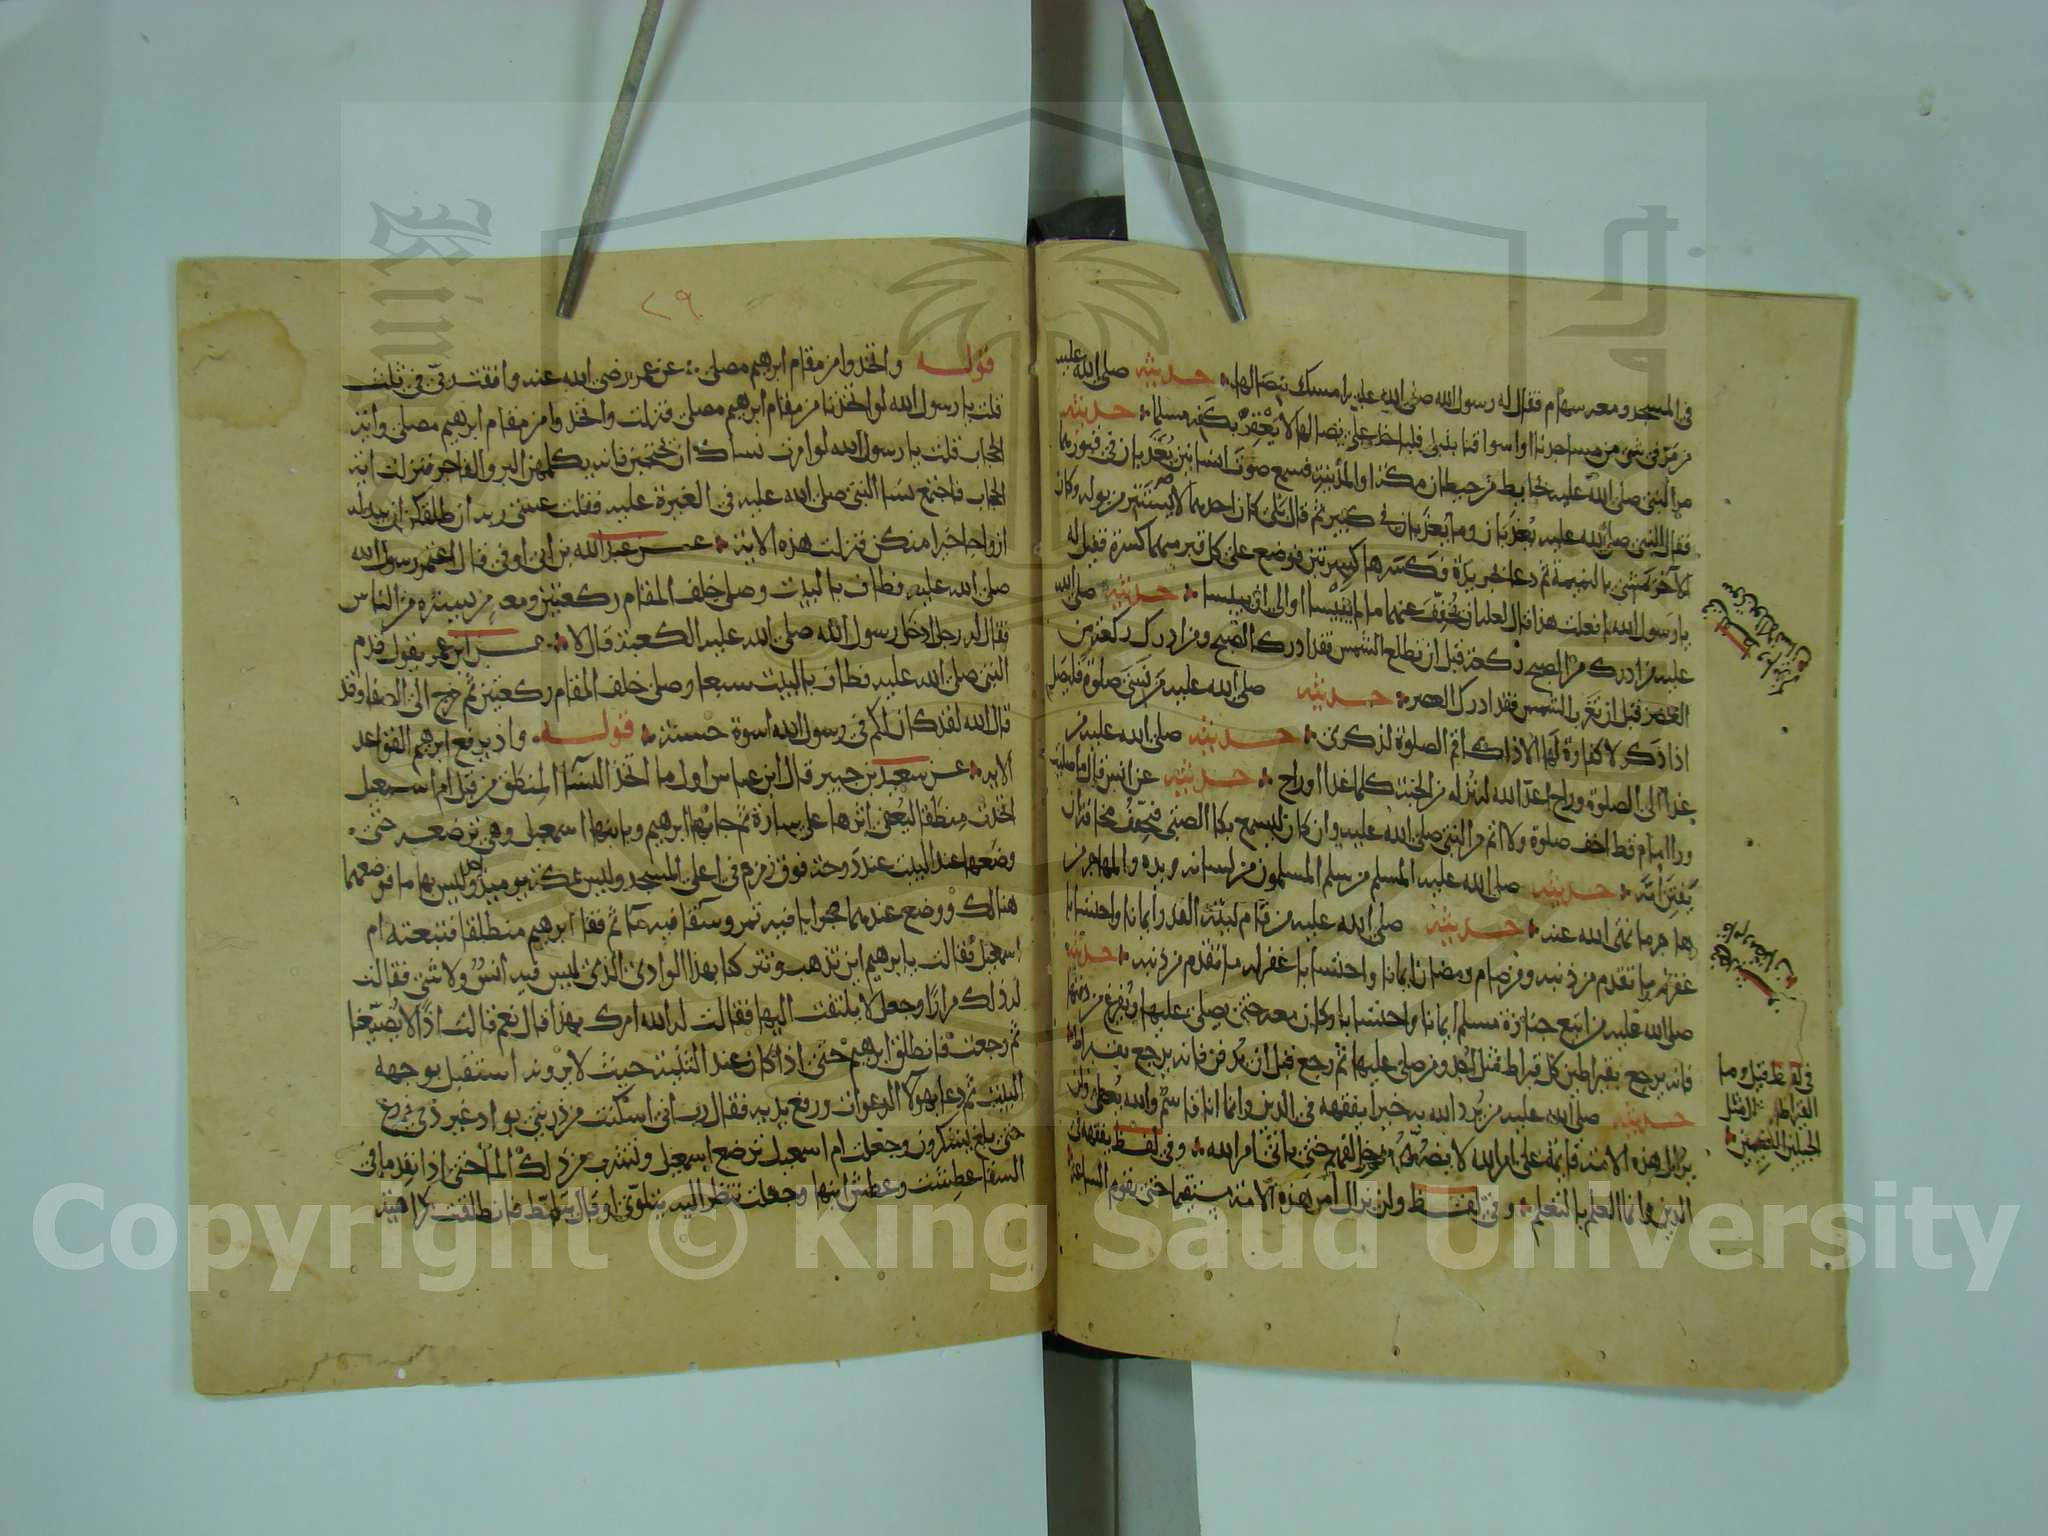 في المسجد ومعه سهام فقال له رسول الله صلى الله عليه امسك بنصالها حديثه صلى الله عليه
من مر في شي من مساجدنا او اسواقنا بنبل فلياخذ على نصالها لا يعقر بكفه مسلما حديثه
مر النبي صلى الله عليه بحايط من حيطان مكة او المدينة فسمع صوت انسانين يعذبان في قبورهما
فقال النبي صلى الله عليه يعذبان وما يعذبان في كبير ثم قال بلى كان احدهما لا يستتر من بوله وكان
الآخر يمشي بالنميمة ثم دعا بجريدة فكسرها كسرتين فوضع على كل قبر منهما كسرة فقيل له
يا رسول الله لم فعلت هذا قال لعله ان يخفف عنهما ما لم ييبسا او الى ان ييبسا حديثه صلى الله
عليه من ادرك من الصبح ركعة قبل ان تطلع الشمس فقد ادرك الصبح ومن ادرك ركعة من
العصر قبل ان تغرب الشمس فقد ادرك العصر حديثه صلى الله عليه من نسي صلوة فليصل
اذا ذكر لا كفارة لها الا ذلك اقم الصلوة لذكرى حديثه صلى الله عليه من
غدا الى الصلوة وراح اعد الله له نزله من الجنة كلما غدا او راح حديثه عن انس قال ما صليت
ورا امام قط اخف صلوة ولا اتم من النبي صلى الله عليه وان كان ليسمع بكا الصبي فيخفف مخافة ان
يفتن امه حديثه صلى الله عليه المسلم من سلم المسلمون من لسانه ويده والمهاجر من
هاجر ما نهى الله عنه حديثه صلى الله عليه من قام ليلة القدر ايمانا واحتسابا
غفر له ما تقدم من ذنبه ومن صام رمضان ايمانا واحتسابا غفر له ما تقدم من ذنبه حديثه
صلى الله عليه من اتبع جنازة مسلم ايمانا واحتسابا وكان معه حتى يصلى عليها ويفرغ من دفنها
فانه يرجع بقيراطين كل قيراط مثل احد ومن صلى عليها ثم رجع قبل ان يدفن فانه يرجع بقيراط
حديثه صلى الله عليه من يرد الله به خيرا يفقهه في الدين وانما انا قاسم والله يعطي ولن
يزال هذه الامة قايمة على امر الله لا يضرهم من خالفهم حتى ياتي امر الله وفي لفظ يفقهه في
الدين وانما العلم بالتعلم وفي لفظ ولن يزال امر هذه الامة مستقيما حتى يقوم الساعة
في لفظ قيل وما
القيراطان قال مثل
الجبلين العظيمين
٢٩
قوله واتخذوا من مقام ابرهيم مصلى عن عمر رضي الله عنه وافقت ربي في ثلث
قلت يا رسول الله لو اتخذنا من مقام ابرهيم مصلى فنزلت واتخذوا من مقام ابرهيم مصلى واية
الحجاب قلت يا رسول الله لو امرت نساك ان يحتجبن فانه يكلمهن البر والفاجر فنزلت اية
الحجاب فاجتمع نسا النبي صلى الله عليه في الغيرة عليه فقلت عسى ربه ان طلقكن ان يبدله
ازواجا خيرا منكن فنزلت هذه الاية عن عبد الله بن ابي اوفى قال اعتمر رسول الله
صلى الله عليه فطاف بالبيت وصلى خلف المقام ركعتين ومعه من يستره من الناس
فقال له رجل ادخل رسول الله صلى الله عليه الكعبة قال لا عن ابن عمر يقول قدم
النبي صلى الله عليه فطاف بالبيت سبعا وصلى خلف المقام ركعتين ثم خرج الى الصفا وقد
قال الله لقد كان لكم في رسول الله اسوة حسنة قوله واذ يرفع ابرهيم القواعد
الاية عن سعيد بن جبير قال ابن عباس اول ما اتخذ النسا المنطق من قبل ام اسمعيل
اتخذت منطقا ليعفى اثرها على سارة ثم جا بها ابرهيم وبابنها اسمعيل وهي ترضعه حتى
وضعها عند البيت عند دوحة فوق زمزم في اعلى المسجد وليس بمكة يوميذ احد وليس بها ما فوضعهما
هنالك ووضع عندهما جرابا فيه تمر وسقا فيه ما ثم قفا ابرهيم منطلقا فتبعته ام
اسمعيل فقالت يا ابرهيم اين تذهب وتتركنا بهذا الوادي الذي ليس فيه انس ولا شي فقالت
له ذلك مرارا وجعل لا يلتفت اليها فقالت له الله امرك بهذا قال نعم قالت اذا لا يضيعنا
ثم رجعت فانطلق ابرهيم حتى اذا كان عند الثنية حيث لا يرونه استقبل بوجهه
البيت ثم دعا بهولا الدعوات ورفع يديه فقال رب اني اسكنت من ذريتي بواد غير ذي زرع
حتى بلغ يشكرون وجعلت ام اسمعيل ترضع اسمعيل وتشرب من ذلك الما حتى اذا نفد ما في
السقا عطشت وعطش ابنها وجعلت تنظر اليه يتلوى او قال يتلبط فانطلقت كراهية
Copyright © King Saud University